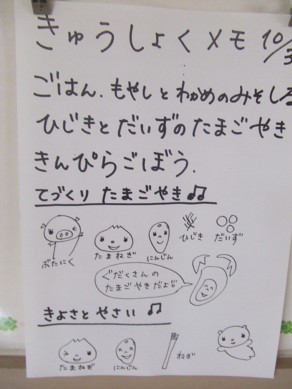 きゅうしょくメモ 10/
ごはん. もやしとわかめのみそしる
ひじきとだいずのたまごやき
きんぴらごぼう.
てづくり たまごやき♫
ぶたにく
たまねぎ
にんじん
ひじき
だいず
ぐだくさんの
たまごやきだよ♪
きよさと やさい ♫
たまねぎ
にんじん
ねぎ